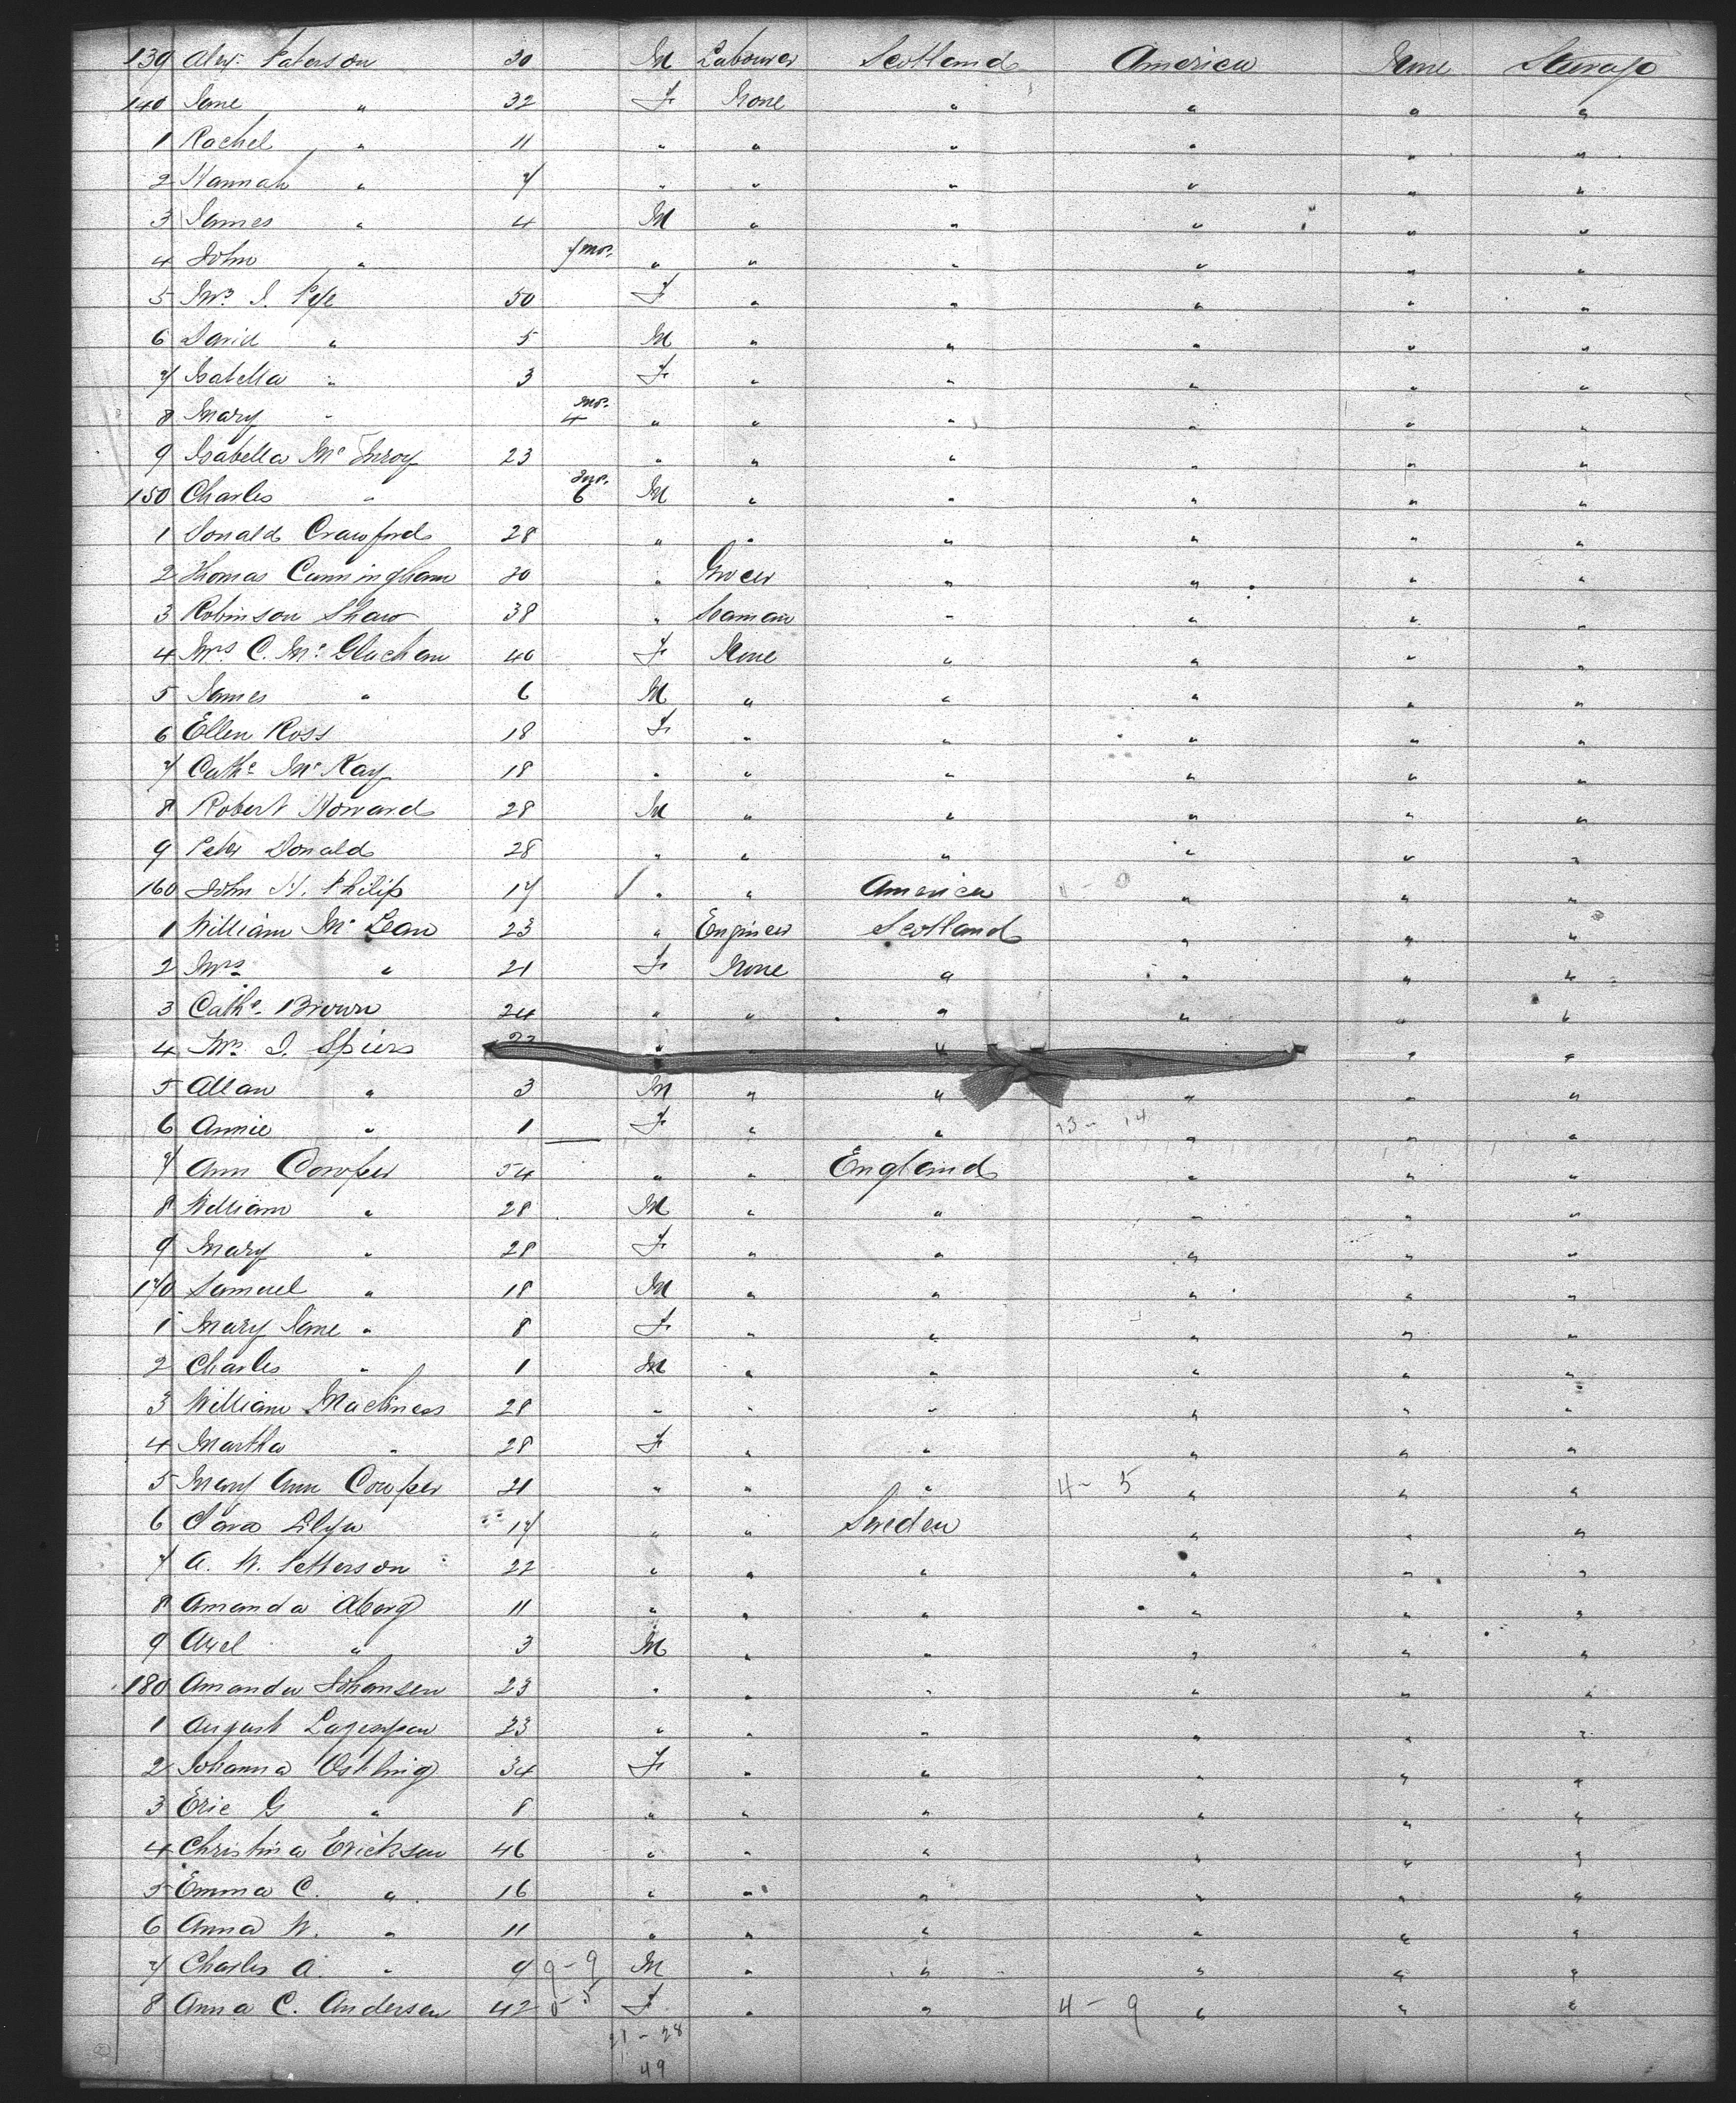 139 Alex. Paterson 30 M Labourer Scotland America None Steerage
140 Jane " 32 F None " " " "
1 Rachel " 11 " " " " " "
2 Hannah " 7 " " " " " "
3 James " 4 M " " " " "
4 John " 7 mos. " " " " " "
5 Mrs J. 50 F " " " " "
6 David " 5 M " " " " "
7 Isabella " 3 F " " " " "
8 Mary " 4 mos. " " " " " "
9 Isabella Mc Inroy 23 " " " " " "
150 Charles " 6 mos. M " " " " "
1 Donald Crawford 28 " " " " " "
2 Thomas Cunningham 30 " Grocer " " " "
3 Robinson Shaw 38 " Seaman " " " "
4 Mrs C. Mc Glachan 40 F None " " " "
5 James " 6 M " " " " "
6 Ellen Ross 18 F " " " " "
7 Cathe Mc Kay 18 " " " " " "
8 Robert Howard 28 M " " " " "
9 Peter Donald 28 " " " " " "
160 John H. Philip 17 / " " America 11 - 0 " " "
1 William Mc Lean 23 " Engineer Scotland " " "
2 Mrs " 21 F None " " " "
3 Cathe. Brown 24 " " " " " "
4 Mrs. J. Spiers " " " "
5 Allan " 3 M " " " " "
6 Annie " 1 F " " 13 - 14 " " "
7 Ann Cowper 54 " " England " " "
8 William " 28 M " " " " "
9 Mary " 28 F " " " " "
170 Samuel " 18 M " " " " "
1 Mary Jane " 8 F " " " " "
2 Charles " 1 M " " " " "
3 William Mackness 28 " " " " " "
4 Martha " 28 F " " " " "
5 Mary Ann Cowper 21 " " " 4 - 5 " " "
6 Clara Lilja 17 " " Sweden " " "
7 A. W. Petterson 22 " " " " " "
8 Amanda Aberg 11 " " " " " "
9 Axel " 3 M " " " " "
180 Amanda Johansen 23 " " " " " "
1 August 23 " " " " " "
2 Johanna Ostling 34 F " " " " "
3 Eric G " 8 " " " " " "
4 Christina Ericksen 46 " " " " " "
5 Emma C. " 16 " " " " " "
6 Anna W. " 11 " " " " " "
7 Charles A. " 9 9 - 9 M " " " " "
8 Anna C. Andersen 42 5 - 5 F " " 4 - 9 " " "
21 - 28
49